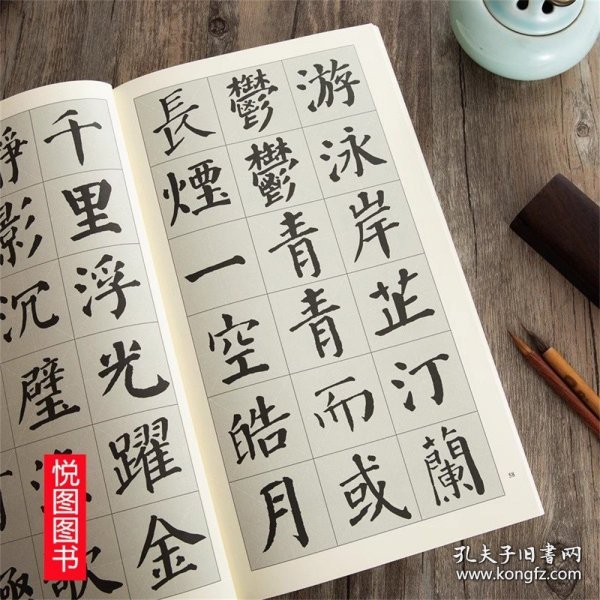 游泳岸芷汀蘭
鬱鬱青青而或
長煙一空皓月
千里浮光躍金
影沉璧
58
悦图图书
孔夫子旧書网
www.kongfz.com